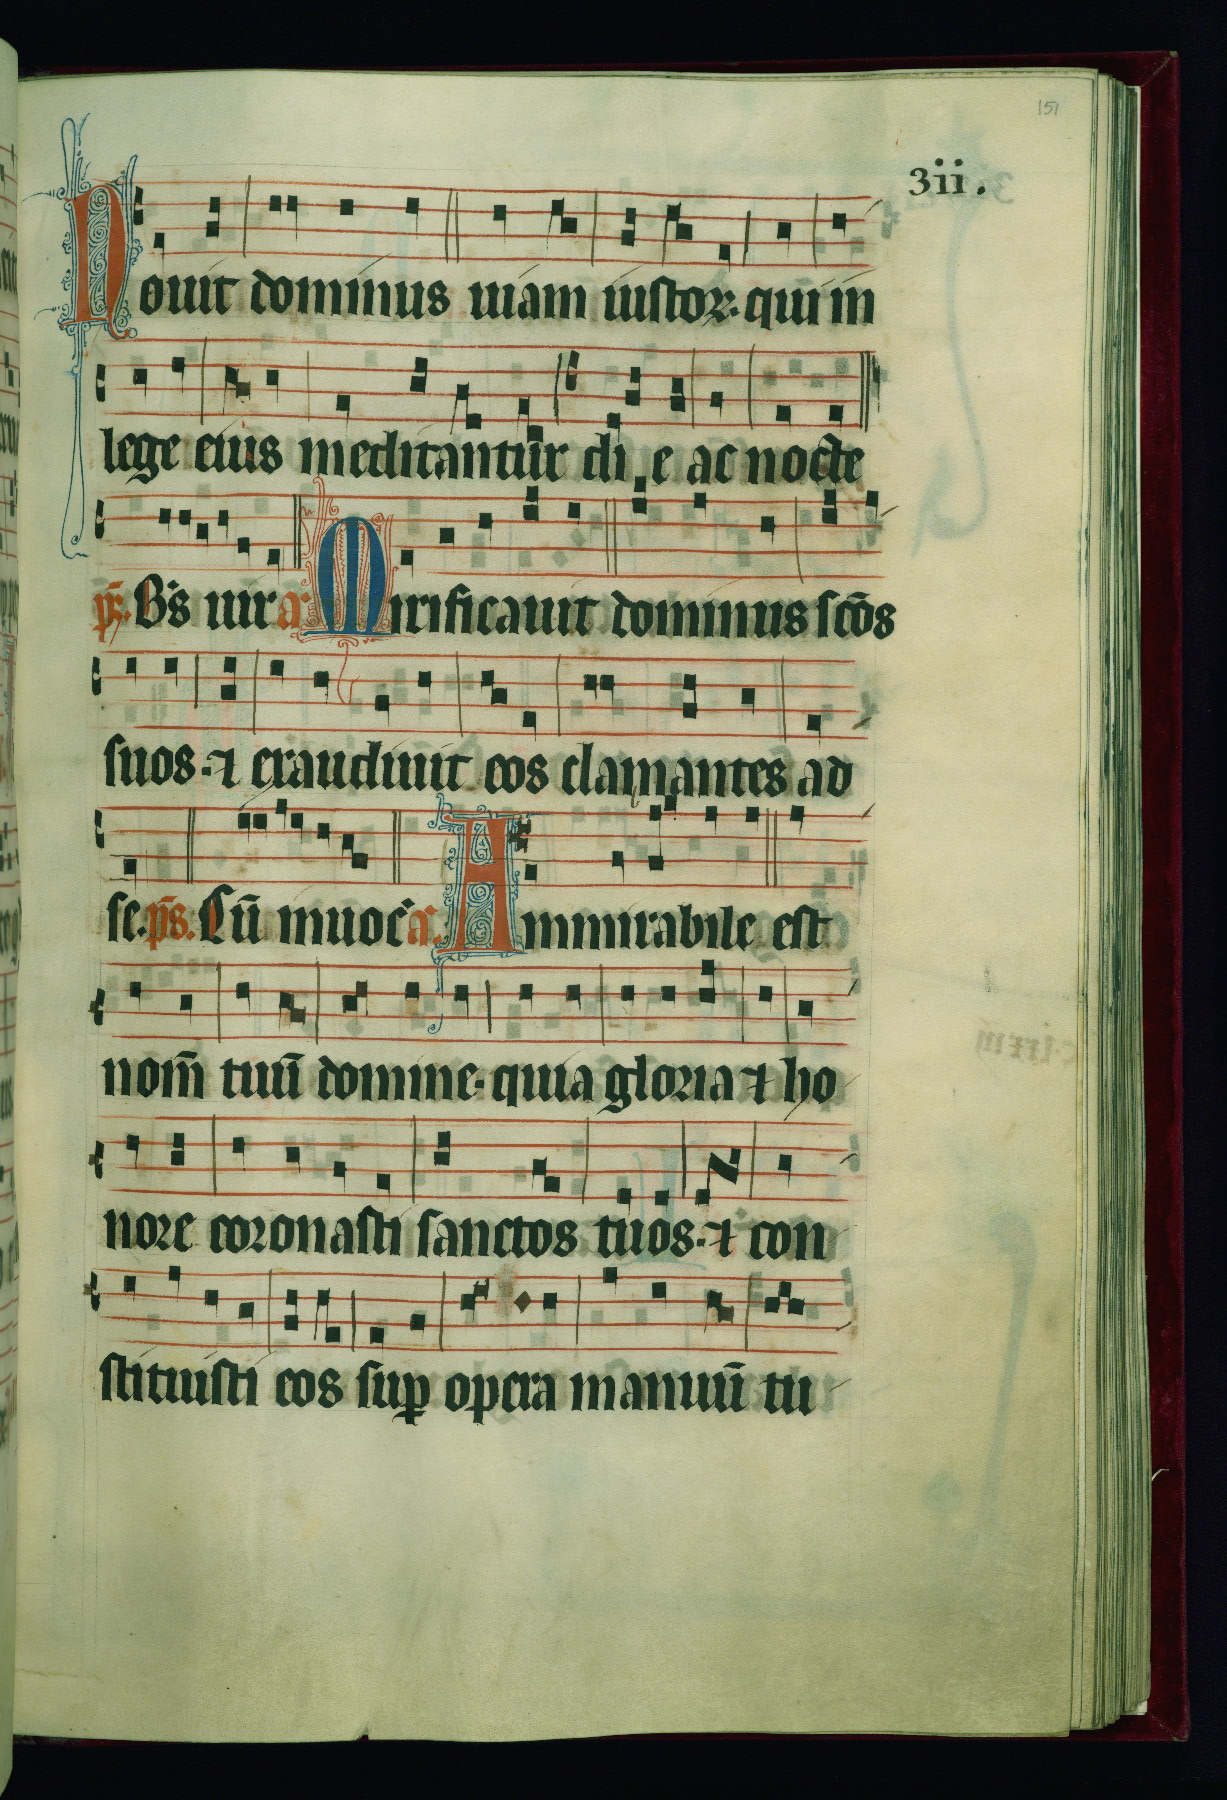 151
3ii.
Nouit dominus uiam iustoꝝ. qui in
lege eius meditantur die ac nocte
p̄s. B̄s uir a. Mirificauit dominus sc̄os
suos. ⁊ exaudiuit eos clamantes ad
se. p̄s. Cū inuoc̄ a. Ammirabile est
nom̄ tuū domine. quia gloria ⁊ ho
nore coronasti sanctos tuos. ⁊ con
stituisti eos suꝑ opera manuū tu